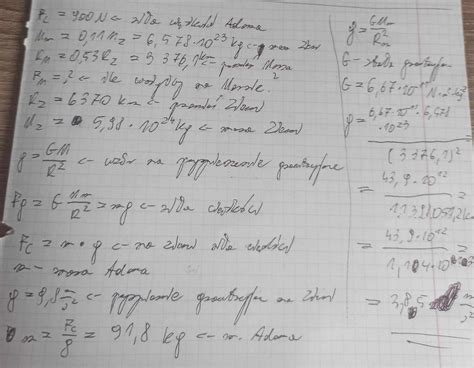 Fc = 900 N ← siła ciężkości Adama
Mm = 0,11 Mz = 6,578 · 10^23 kg ←
Rm = 0,53 Rz = 3376,1 km ← promień Marsa
Fm = ? ← na Marsie
Rz = 6370 km ← promień Ziemi
Mz = 5,98 · 10^24 kg ← masa Ziemi
g = GM/R^2 ← wzór na przyspieszenie grawitacyjne
Fg = G Mm/R^2 = mg ← siła ciężkości
Fc = m · g ← na Ziemi siła ciężkości
m – masa Adama
g = 9,8 m/s^2 ← przyspieszenie grawitacyjne na Ziemi
m = Fc/g = 91,8 kg ← m. Adama
g = GMm/Rm^2
G – stała grawitacji
G = 6,67 · 10^-11
g = 6,67 · 10^-11 · 6,578 · 10^23
(3376,1)^2
= 43,9 · 10^12
= 43,9 · 10^12
= 3,85 m/s^2